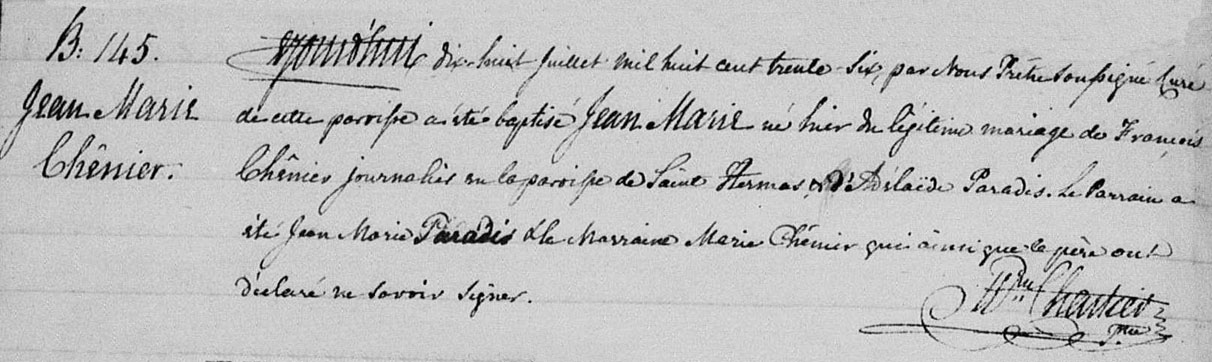 B: 145.
Jean Marie
Chênier.
dix-huit Juillet mil huit cent trente-six, par Nous Prêtre soussigné Curé
de cette paroisse a été baptisé Jean Marie né hier du légitime mariage de François
Chênier journalier en la paroisse de Saint Hermas & d'Adélaïde Paradis. Le Parrain a
été Jean Marie Paradis & la Marraine Marie Chênier qui ainsi que le père ont
déclaré ne savoir signer.
Chartier
Ptre